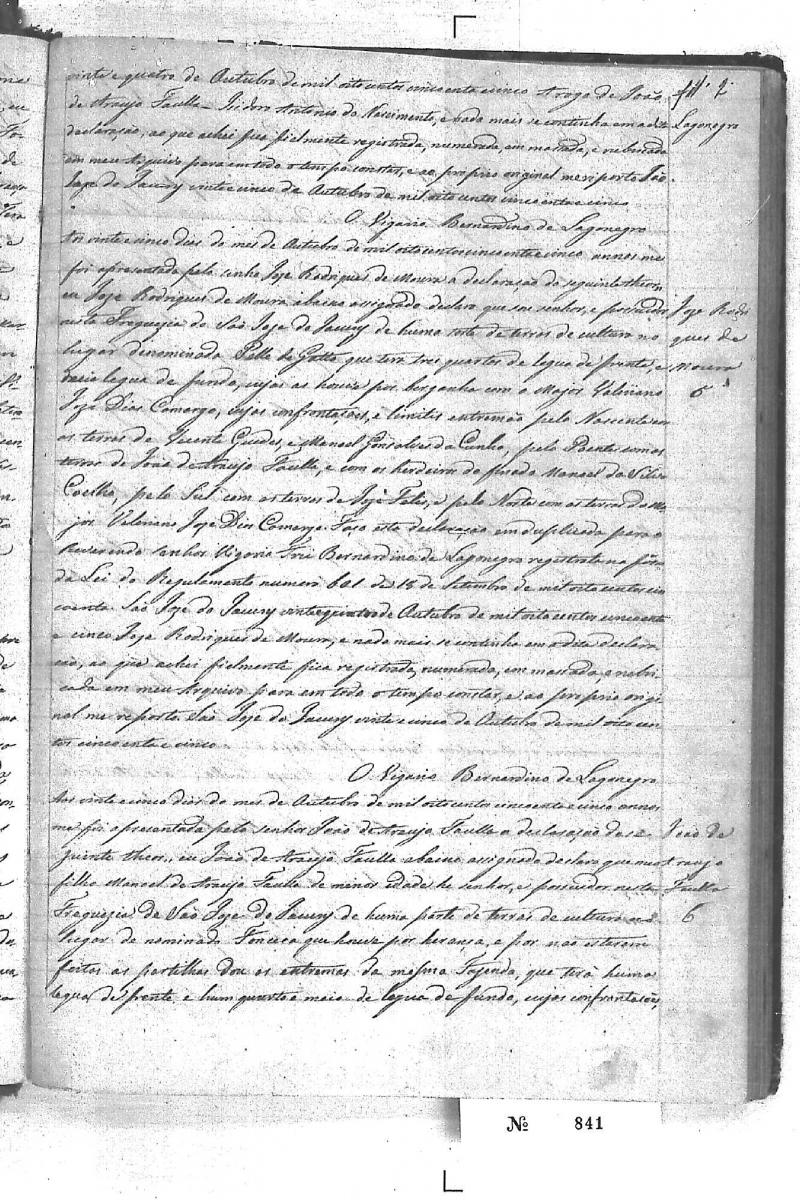 vinte e quatro de Outubro de mil oito centos cincoenta cinco A rogo de João
de Araujo Faulla Isidoro Antonio do Nascimento, e nada mais se continha em a dita
declarasão, ao que achei fica fielmente registrada, numerada, em masada, e rubricada
em meu Arquivo para em todo o tempo constar, e ao proprio original me riporto São
Joze do Jacury vinte cinco de Outubro de mil oito centos cincoenta e cinco
O Vigario Bernardino de Lagonegro
Aos vinte e cinco dias do mes de Outubro de mil oito centos cincoenta e cinco annos me
foi apresentada pelo senhor Joze Rodrigues de Moura a declarasão do seguinte theor
eu Joze Rodrigues de Moura abaixo assignado declaro que sou senhor, e possuidor
nesta Freguezia de São Joze do Jacury de huma sorte de terras de cultura no
lugar denominado Pelle de Gatto que terá tres quartos de legua de frente, e
meia legua de fundo, cujas as houve por barganha com o Major Valeriano
Joze Dias Comargo, cujas confrontasões, e limites entremão pelo Nascente com
as terras de Vicente Guedes, e Manoel Gonsalves da Cunha, pelo Poente com as
terras de João de Araujo Faulla, e com os herdeiros do finado Manoel da Silva
Coelho, pelo Sul com as terras de Joze Felis, e pelo Norte com as terras do Ma-
jor Valeriano Joze Dias Comargo Faso esta declarasão em duplicada para o
Reverendo senhor Vigario Frei Bernardino de Lagonegro registrala na fór
da Lei do Regulamento numero 601 de 18 de Setembro de mil oito centos cin
coenta São Joze do Jacury vinte quatro de Outubro de mil oito centos cincoenta
e cinco Joze Rodrigues de Moura, e nada mais se continha em a dita declara
cão, ao que achei fielmente fica registrada, numerada, em masada, e rubri
cada em meu Arquivo para em todo o tempo constar, e ao proprio origi
nal me reporto São Joze do Jacury vinte e cinco de Outubro de mil oito cen
tos cincoenta e cinco
O Vigario Bernardino de Lagonegro
Aos vinte e cinco dias do mes de Outubro de mil oito centos cincoenta e cinco annos
me foi apresentada pelo senhor João de Araujo Faulla a declarasão do se-
guinte theor, eu João de Araujo Faulla abaixo assignado declaro que meo
filho Manoel de Araujo Faulla de menor idade he senhor, e possuidor nesta
Freguezia de São Joze do Jacury de huma parte de terras de cultura no
lugar de nominado Fonceca que houve por heransa, e por não estarem
feitas as partilhas dou os extremos da mesma Fazenda, que terá huma
legua de frente e hum quarto e meio de legua de fundo, cujas confrontasões,
fl 2
Lagonegro
Joze Rodri
gues de
Moura
5
João de
Araujo
Faulla
6
Nº 841